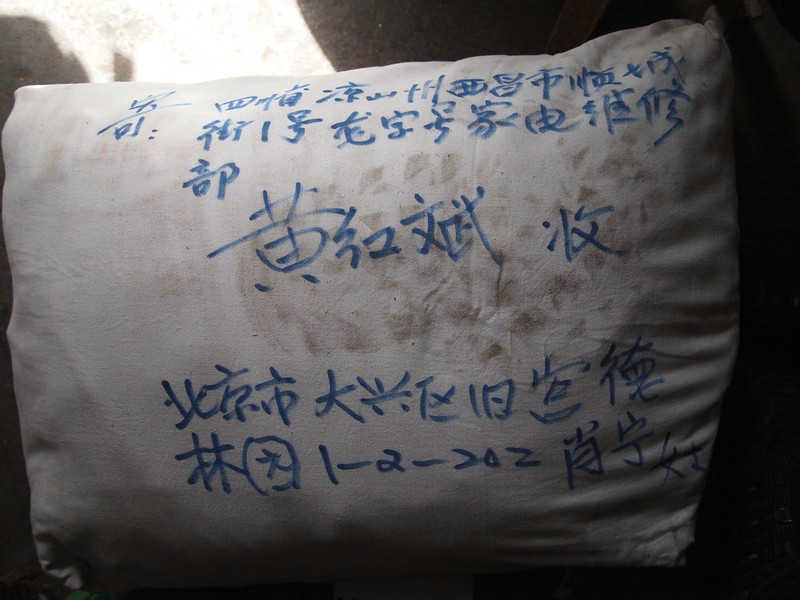 寄: 四省凉山州西昌市恤七成
街1号龙字号家电维修
部
黄红斌 收
北京市大兴区旧宫德
林园1-2-202肖宁